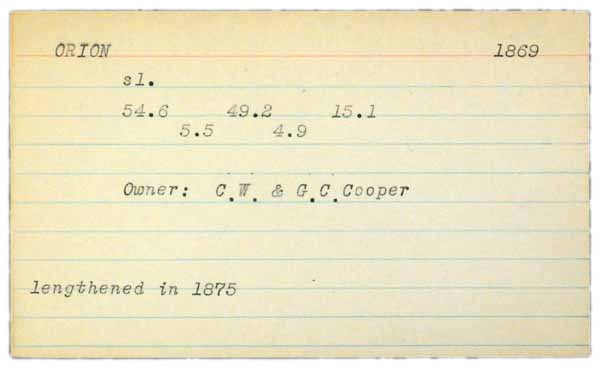 ORION 1869
sl.
54.6 49.2 15.1
5.5 4.9
Owner: C.W. & G.C.Cooper
lengthened in 1875